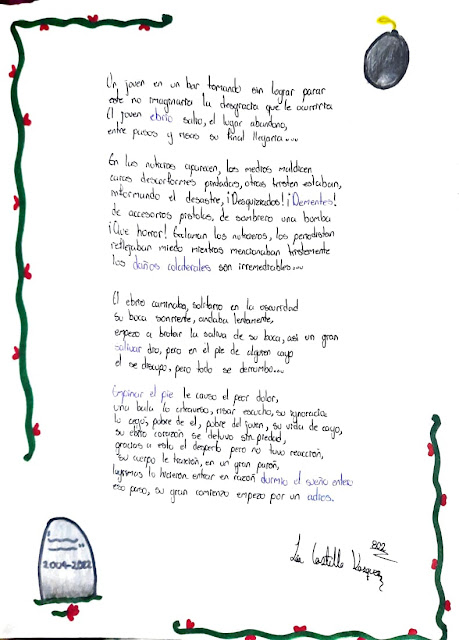 Un joven en un bar tomando sin lograr parar
este no imaginaria la desgracia que le ocurriria
El joven ebrio salio, el lugar abandono,
entre pasos y risas su final llegaria...
En las noticias aparecen, los medios maldicen
caras desconformes pintadas, otras tristes estaban,
informando el desastre, ¡Desquiciados! ¡Dementes!
de accesorios pistolas, de sombrero una bomba
¡Que horror! Exclaman los noticieros, los periodistas
reflejaban miedo mientras mencionaban tristemente
los daños colaterales son irremediables...
El ebrio caminaba, solitario en la oscuridad
su boca sonriente, andaba lentamente,
empezo a brotar la saliva de su boca, asi un gran
salivar dio, pero en el pie de alguien cayo
el se disculpo, pero todo se derrumbo...
Espinar el pie le causo el peor dolor,
una bala lo atraveso, risas escucho, su ignorancia
lo cegó, pobre de el, pobre del joven, su vida de cayo,
su ebrio corazon se detuvo sin piedad,
gracias a esto el desperto pero no tuvo reacción,
su cuerpo le traicionó, en un gran
lagrimas lo hicieron entrar en razón durmio el sueño eterno
ese paso, su gran comienzo empezo por un adios.
802
Castillo Vasquez
2004-2022